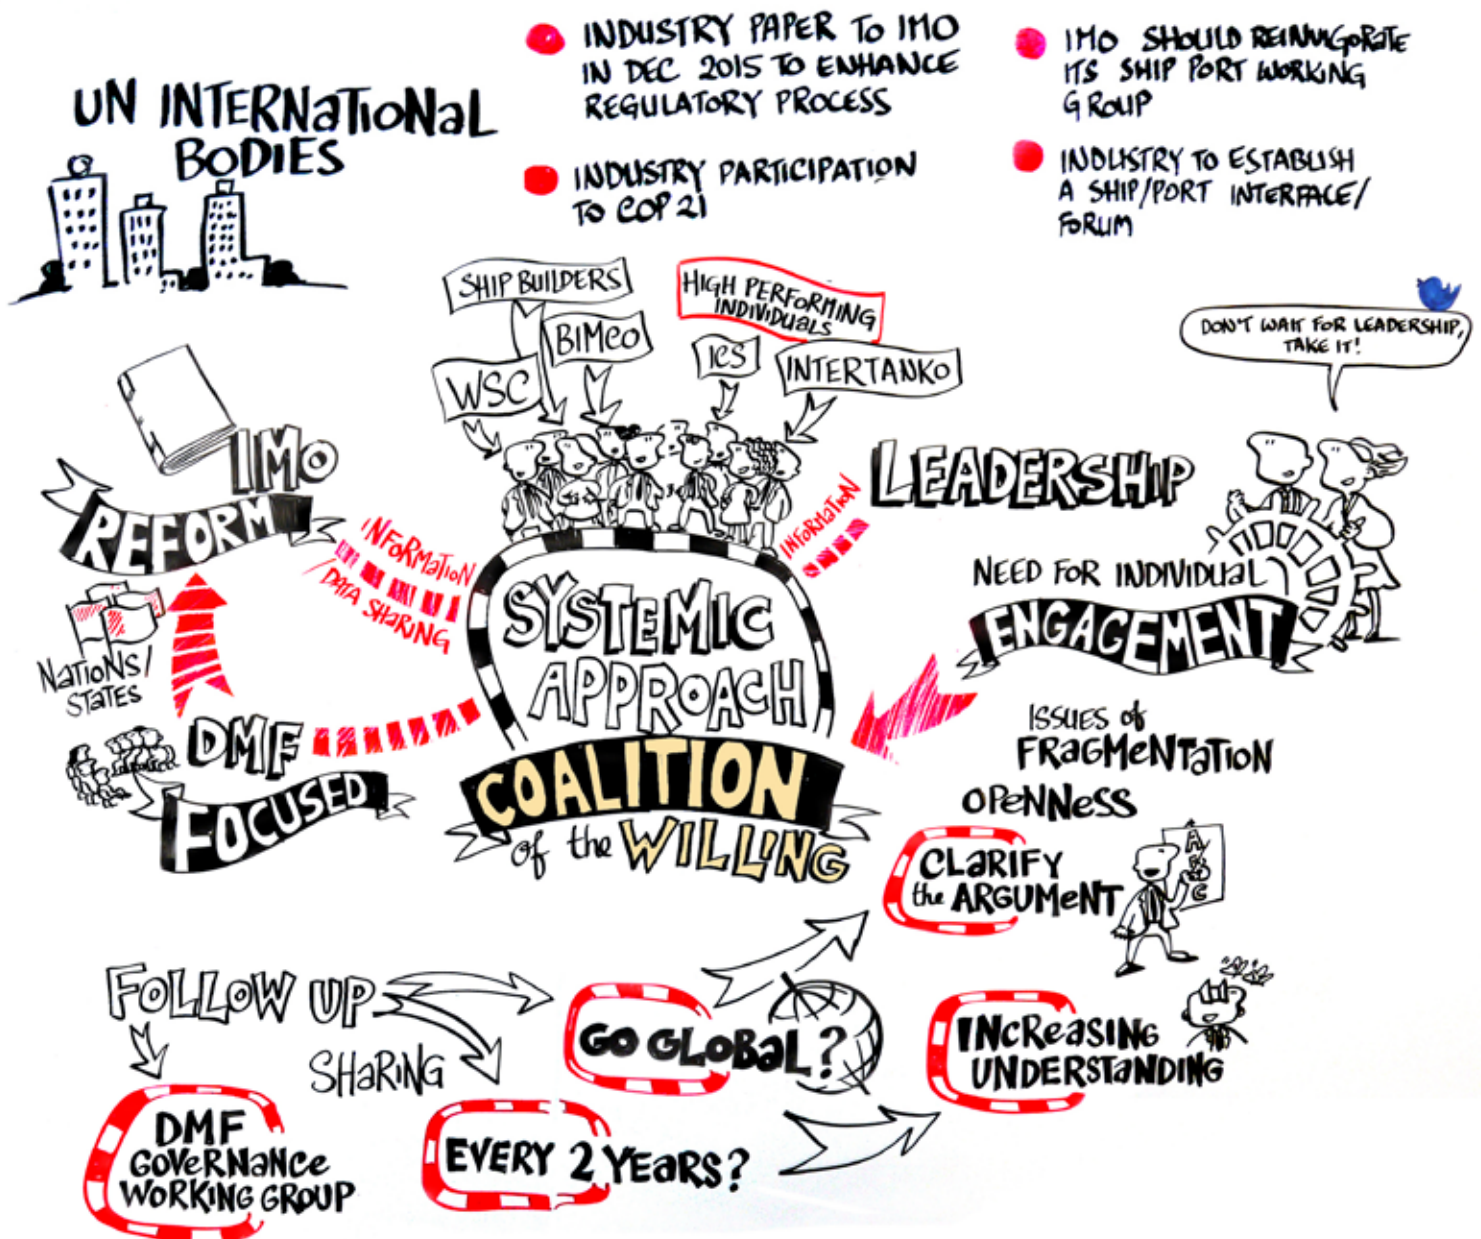 UN INTERNATIONAL
BODIES
INDUSTRY PAPER TO IMO
IN DEC 2015 TO ENHANCE
REGULATORY PROCESS
INDUSTRY PARTICIPATION
TO COP 21
IMO SHOULD REINVIGORATE
ITS SHIP PORT WORKING
GROUP
INDUSTRY TO ESTABLISH
A SHIP/PORT INTERFACE/
FORUM
SHIP BUILDERS
BIMCO
WSC
HIGH PERFORMING
INDIVIDUALS
ICS
INTERTANKO
DON'T WAIT FOR LEADERSHIP,
TAKE IT!
IMO
REFORM
INFORMATION
/DATA SHARING
INFORMATION
LEADERSHIP
NEED FOR INDIVIDUAL
ENGAGEMENT
NATIONS/
STATES
DMF
FOCUSED
SYSTEMIC
APPROACH
COALITION
of the WILLING
ISSUES of
FRAGMENTATION
OPENNESS
CLARIFY
the ARGUMENT
A
B
C
FOLLOW UP
SHARING
GO GLOBAL?
INCREASING
UNDERSTANDING
DMF
GOVERNANCE
WORKING GROUP
EVERY 2 YEARS?